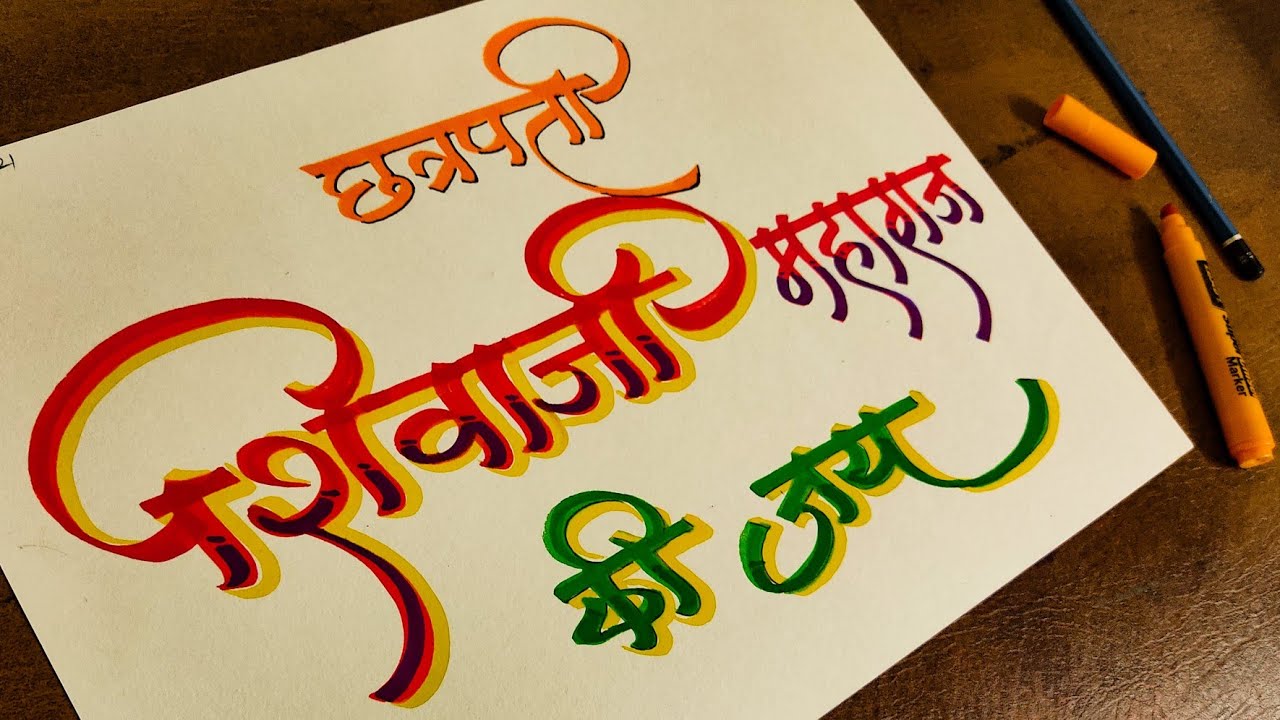 छत्रपती
शिवाजी
महाराज
की जय
Marker